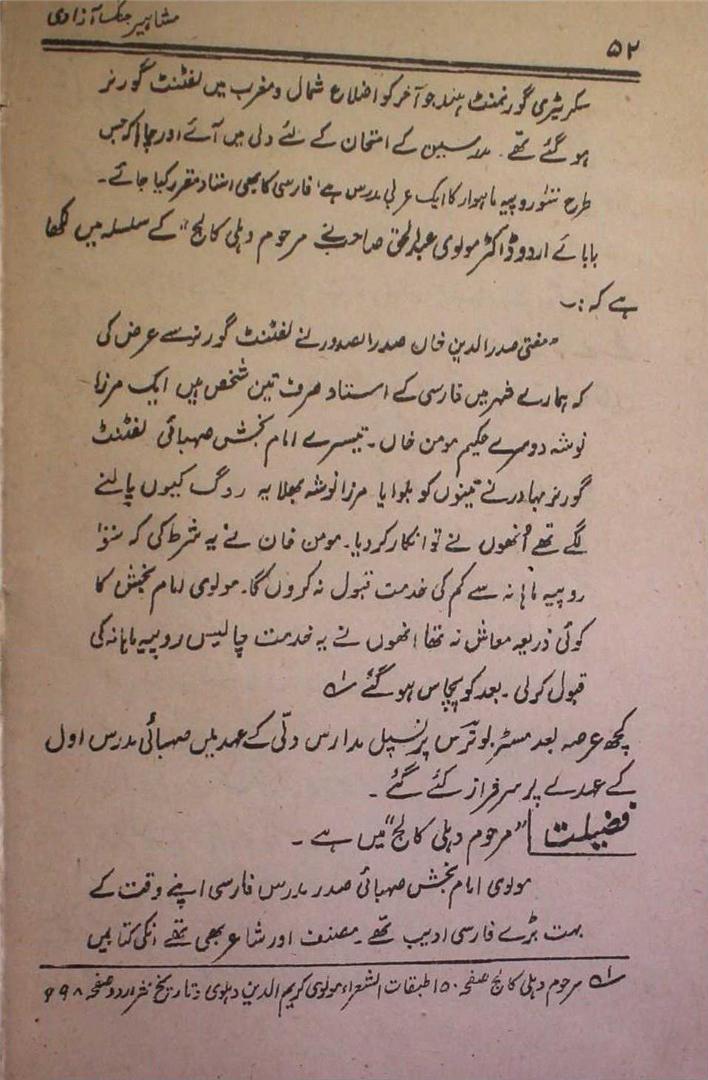 ۵۲
مشاہیر جنگ آزادی
سکریٹری گورنمنٹ ہند جو آخر کو اضلاع شمال و مغرب میں لفٹنٹ گورنر
ہو گئے تھے۔ مدرسین کے امتحان کے لئے دلی میں آئے اور چاہا کہ جس
طرح سَو روپیہ ماہوار کا ایک عربی مدرس ہے، فارسی کا بھی استاد مقرر کیا جائے۔
بابائے اردو ڈاکٹر مولوی عبدالحق صاحب نے مرحوم دہلی کالج" کے سلسلہ میں لکھا
ہے کہ:۔
"مفتی صدر الدین خان صدر الصدور نے لفٹنٹ گورنر سے عرض کی
کہ ہمارے شہر میں فارسی کے استاد صرف تین شخص ہیں ایک مرزا
نوشہ دوسرے حکیم مومن خاں۔ تیسرے امام بخش صہبائی لفٹنٹ
گورنر بہادر نے تینوں کو بلوایا مرزا نوشہ بھلا یہ روگ کیوں پالنے
لگے تھے اُنھوں نے تو انکار کر دیا۔ مومن خان نے یہ شرط کی کہ سَو
روپیہ ماہانہ سے کم کی خدمت قبول نہ کروں گا۔ مولوی امام بخش کا
کوئی ذریعہ معاش نہ تھا انھوں نے یہ خدمت چالیس روپیہ ماہانہ کی
قبول کر لی۔ بعد کو پچاس ہو گئے ؎۱
کچھ عرصہ بعد مسٹر بوترس پرنسپل مدارس دلّی کے عہد میں صہبائی مدرس اول
کے عہدے پر سرفراز کئے گئے۔
فضیلت "مرحوم دہلی کالج" میں ہے۔
مولوی امام بخش صہبائی صدر مدرس فارسی اپنے وقت کے
بہت بڑے فارسی ادیب تھے۔ مصنف اور شاعر بھی تھے انکی کتابیں
؎۱ مرحوم دہلی کالج صفحہ ۱۵۰ طبقات الشعراء مولوی کریم الدین دہلوی و تاریخ نثر اردو صفحہ